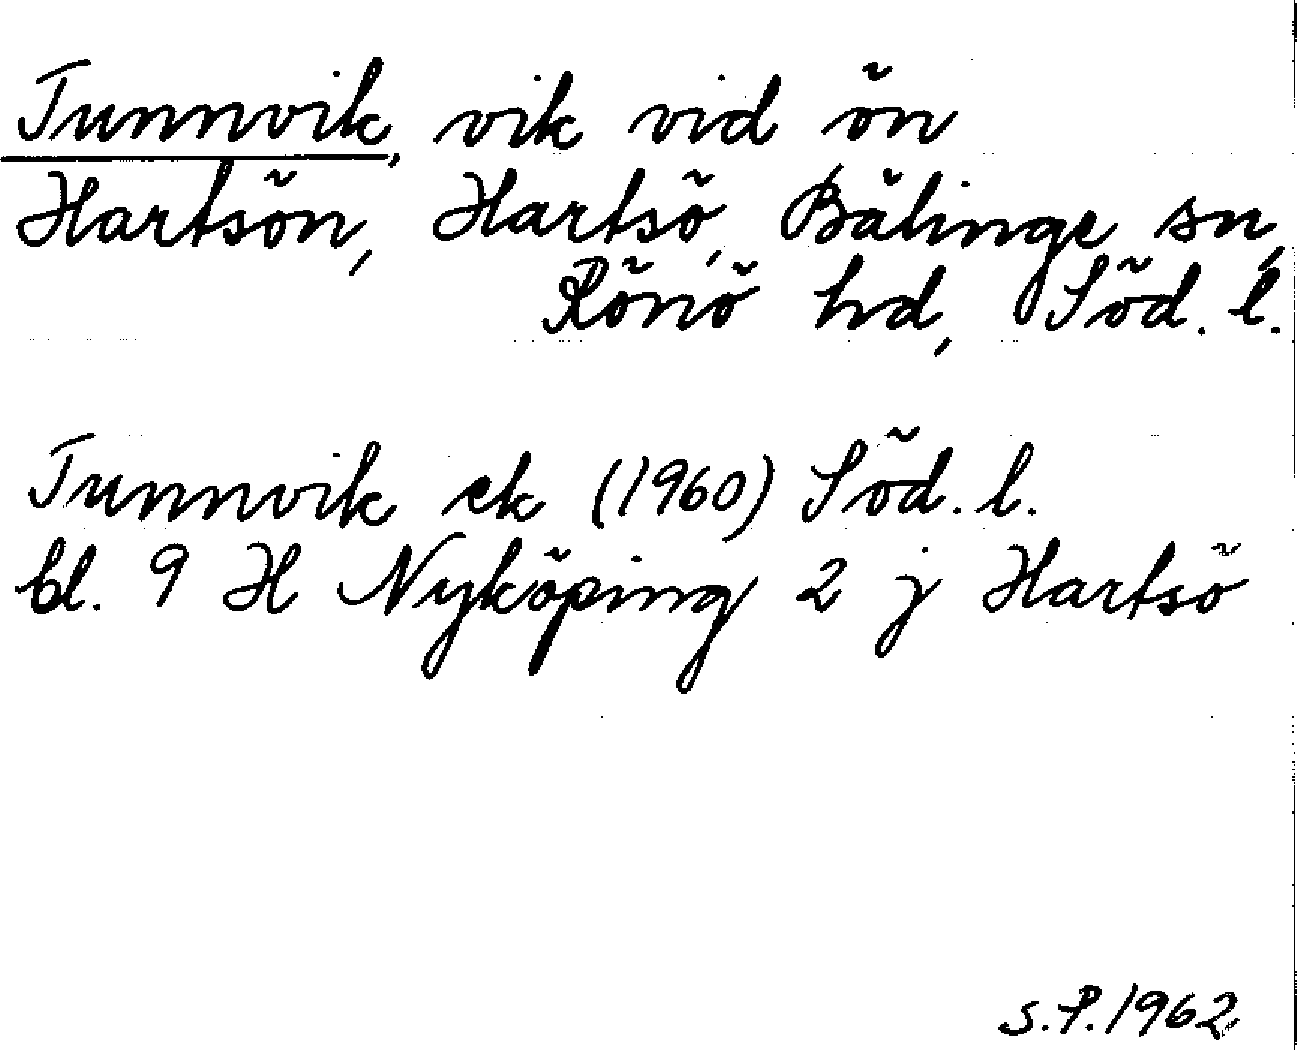 Tunnvik, vik vid ön
Hartsön, Hartsö, Bälinge sn,
Rönö hd, Söd. l.
Tunnvik ek (1960) Söd. l.
bl. 9 H Nyköping 2 j Hartsö
S.P. 1962